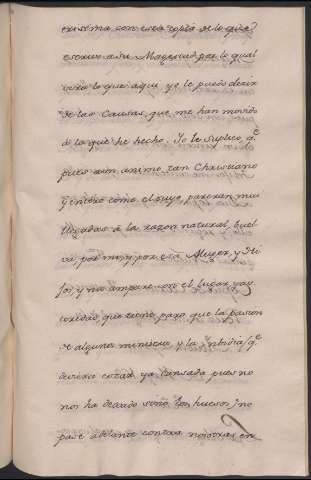 con esta copia de lo que
escrivo a su Magestad por lo qual
vera lo que aqui yo le puedo decir
de las Causas, que me han movido
a lo que he hecho. Yo le Suplico, q.e
pues con animo tan Christiano
y entero como el suyo, pareran mui
llegadas à la razon natural, buel
va por mi, y por esta Muger, y Hi
jos, y nos ampare con el lugar, y au
toridad, que tiene, para que la pasion
de algunos ministros, y la inbidia, q.e
deviera estar ya Cansada pues no
nos ha dexado sino los huesos, no
pase adelante contra nosotros en